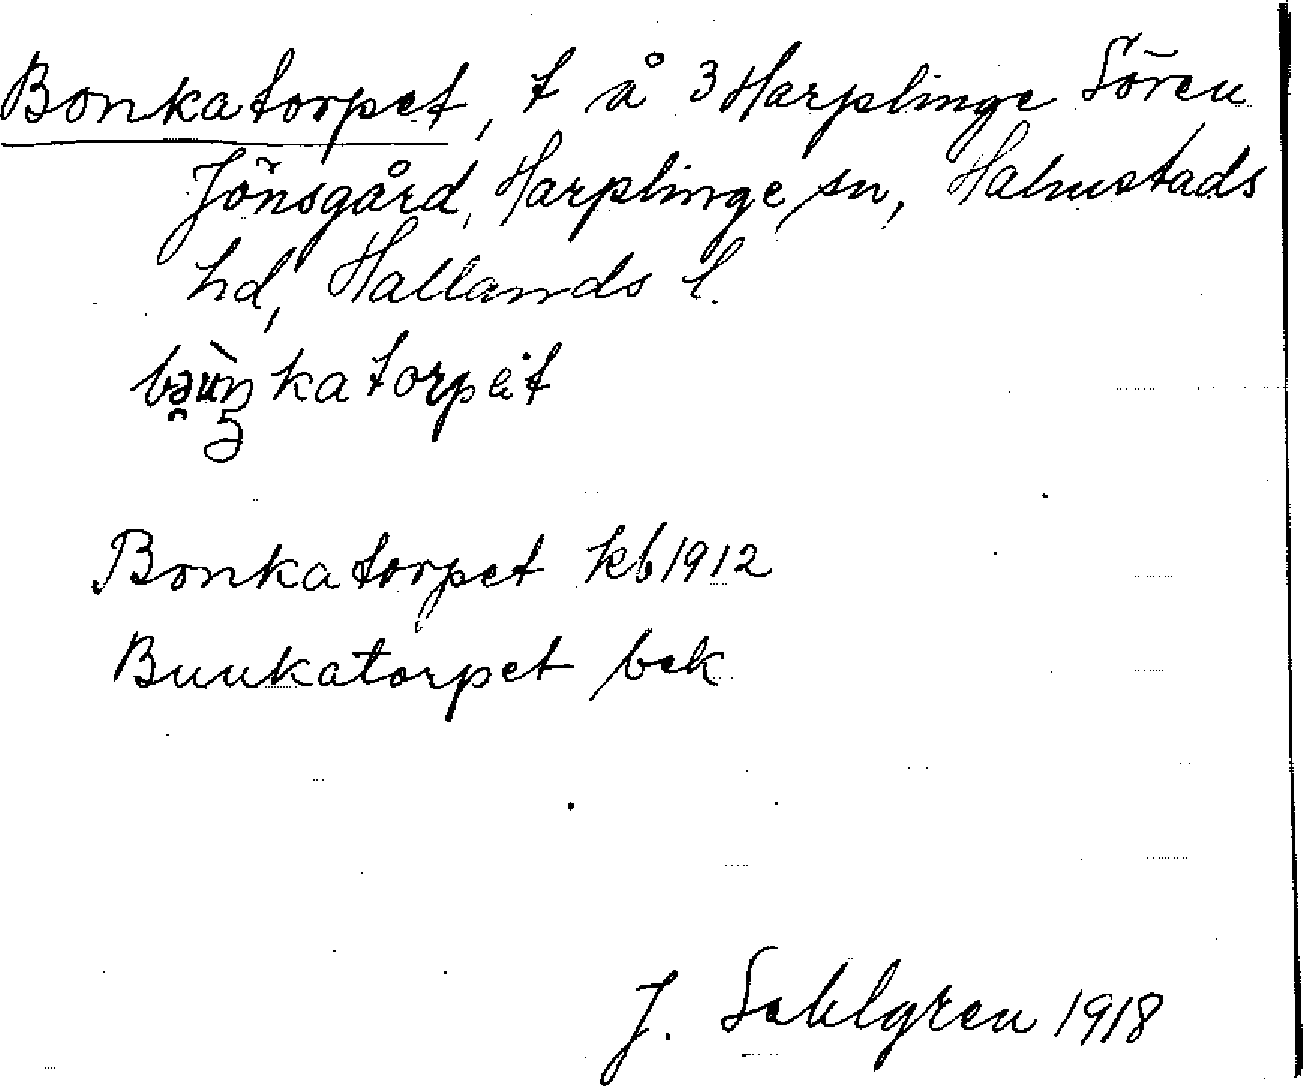 Bonkatorpet, t å 3 Harplinge Sören
Jönsgård, Harplinge sn, Halmstads
hd, Hallands l.
Bonkatorpet kb 1912
Bunkatorpet bek
J. Sahlgren 1918